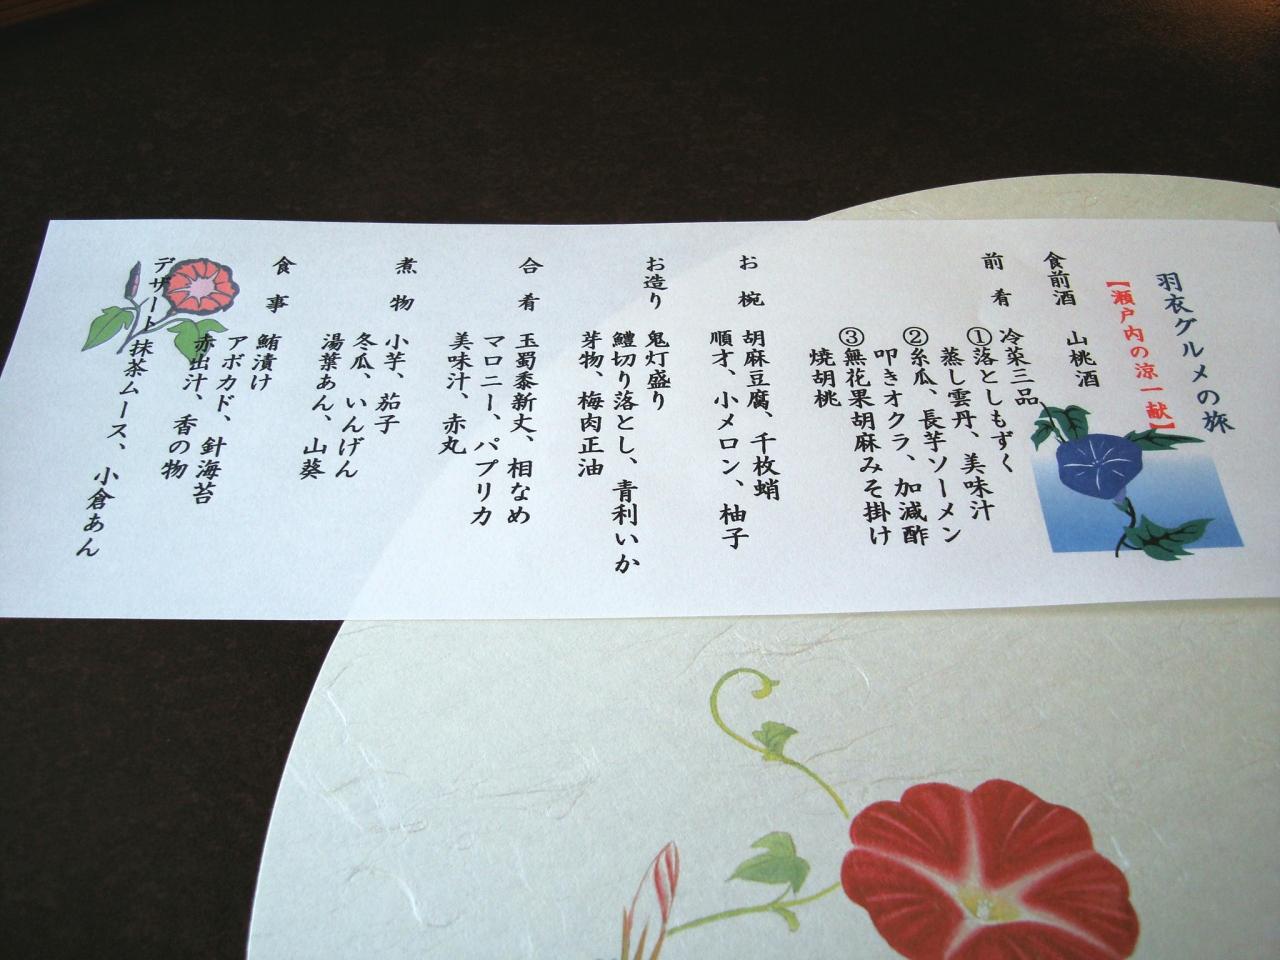 羽衣グルメの旅
【瀬戸内の涼一献】
食前酒　山桃酒
前肴　冷菜三品
①落としもずく
蒸し雲丹、美味汁
②糸瓜、長芋ソーメン
叩きオクラ、加減酢
③無花果胡麻みそ掛け
焼胡桃
お椀　胡麻豆腐、千枚蛸
順才、小メロン、柚子
お造り　鬼灯盛り
鱧切り落とし、青利いか
芽物、梅肉正油
合肴　玉蜀黍新丈、相なめ
マロニー、パプリカ
美味汁、赤丸
煮物　小芋、茄子
冬瓜、いんげん
湯葉あん、山葵
食事　鮪漬け
アボカド、針海苔
赤出汁、香の物
デザート　抹茶ムース、小倉あん